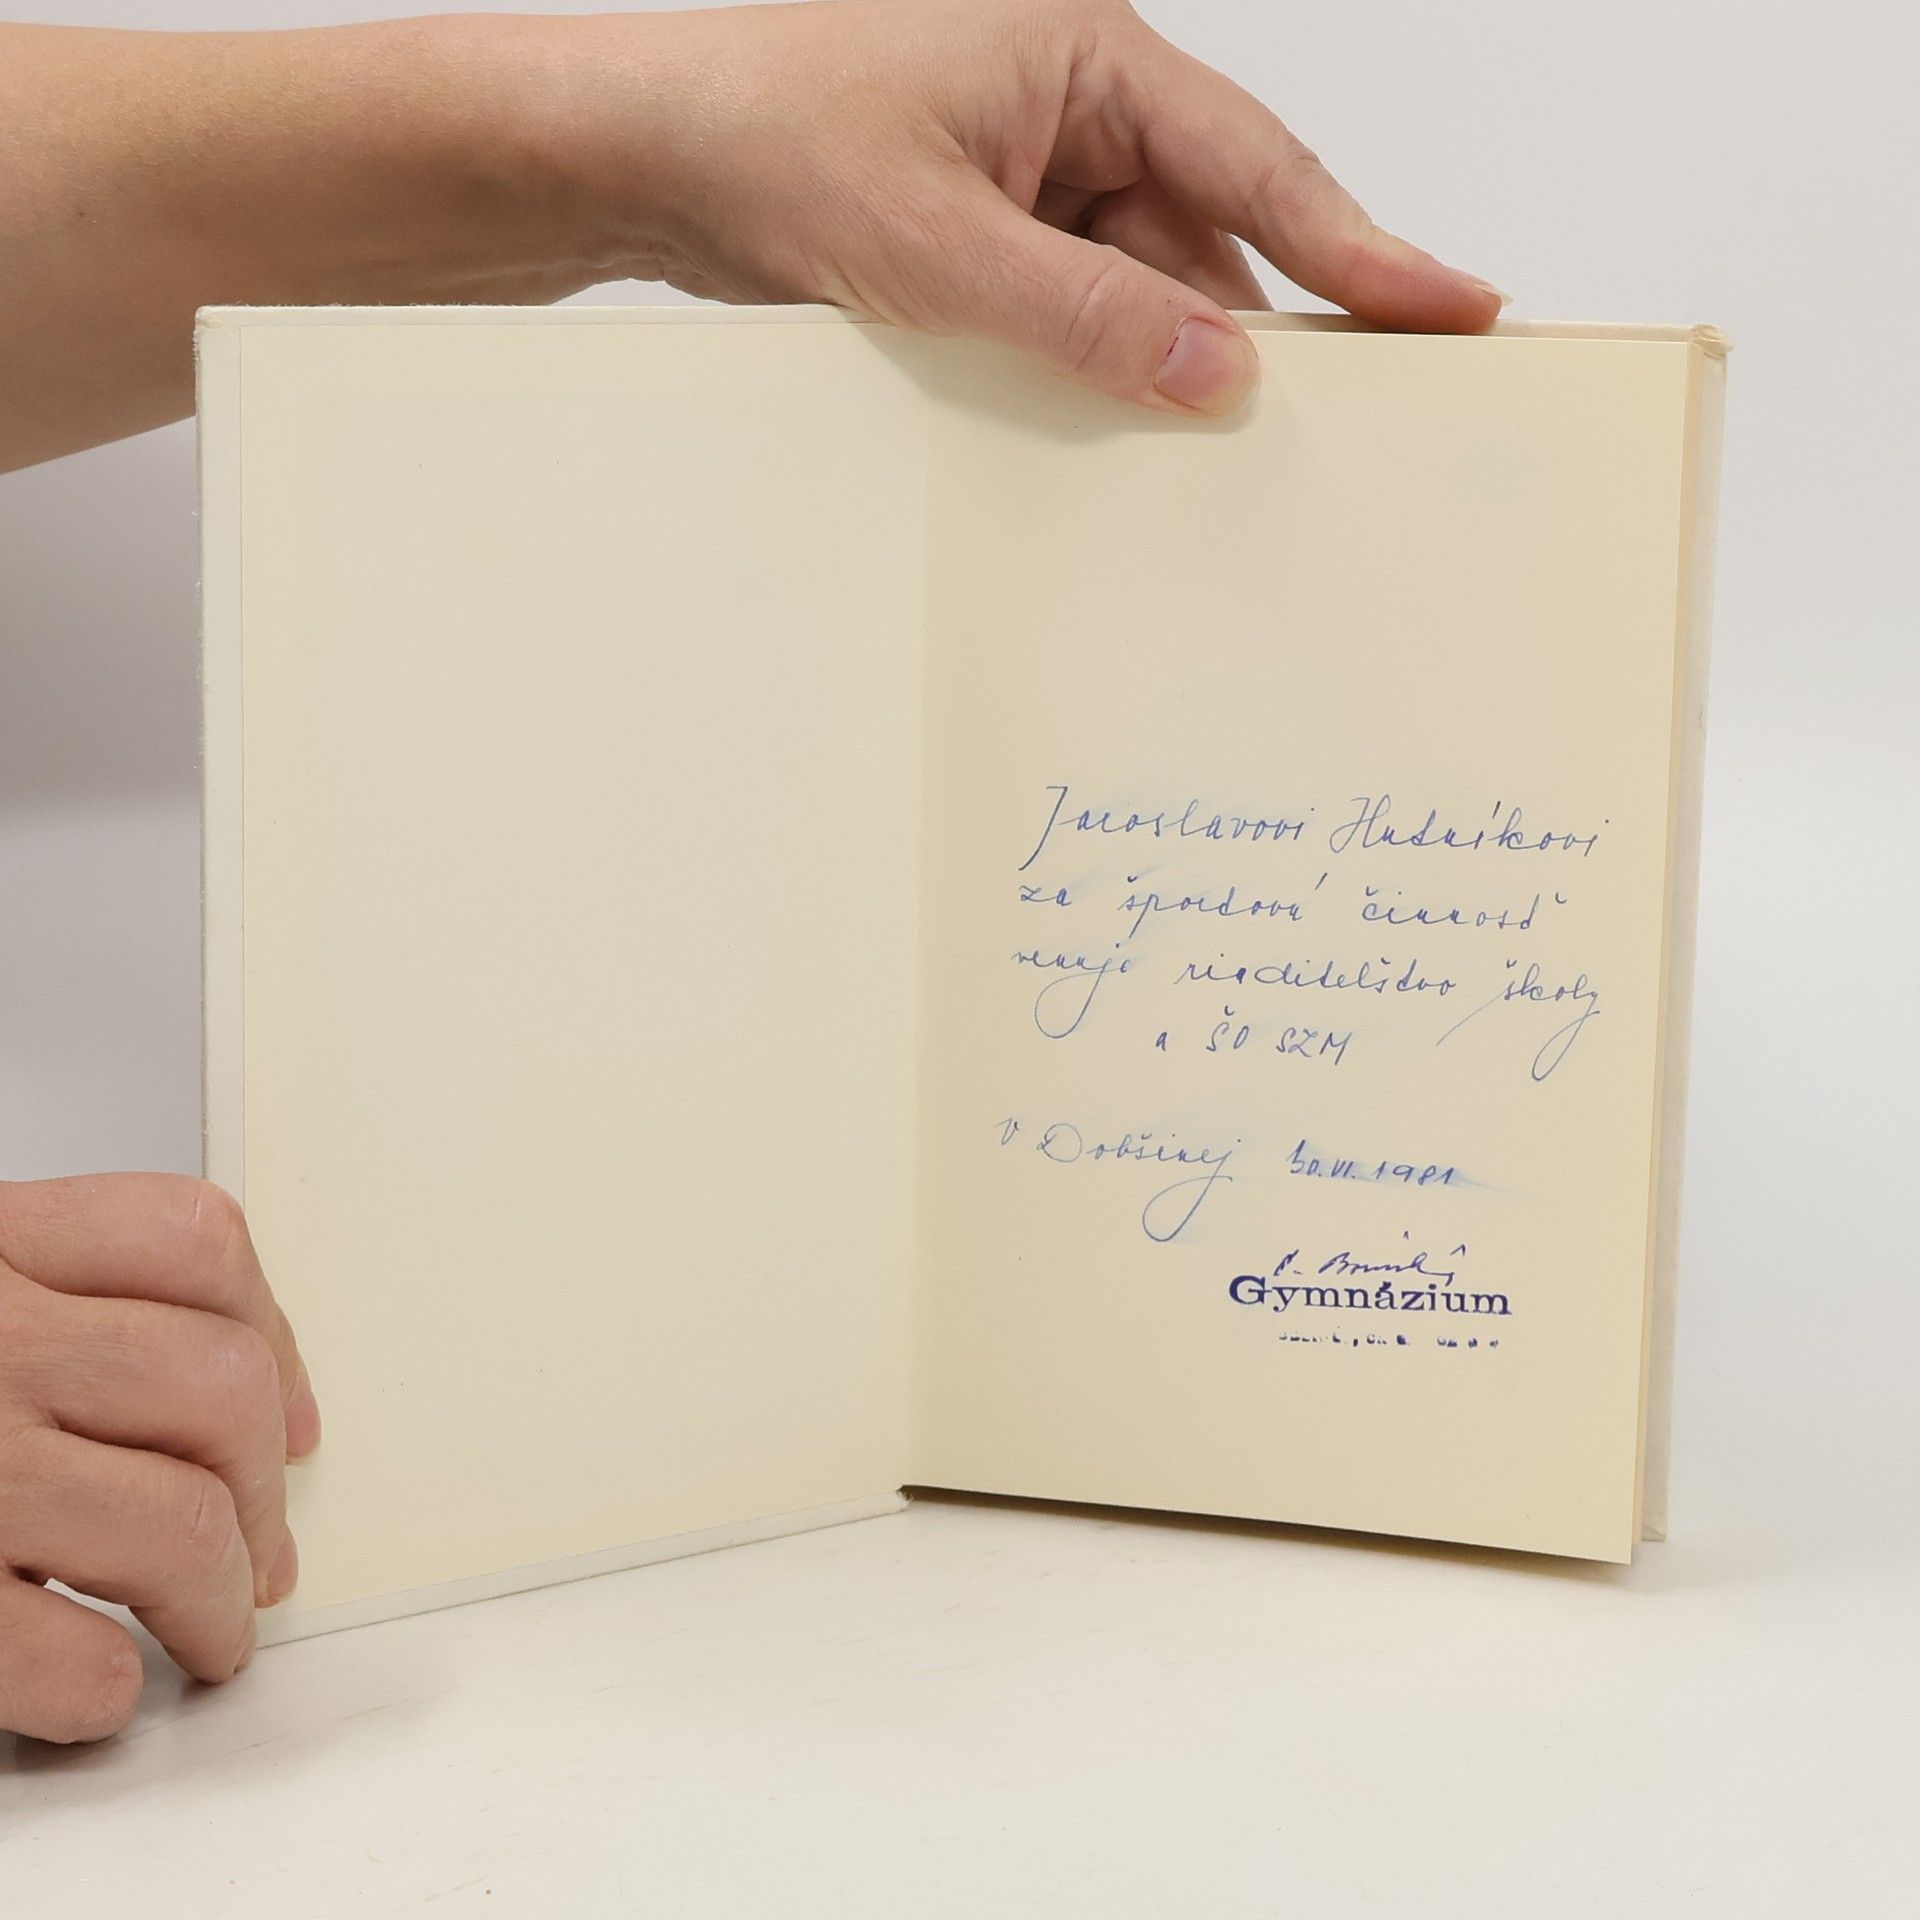 Jaroslavovi Hutníkovi
za športovú činnosť
venuje riaditeľstvo školy
a ŠO SZM
V Dobšinej 30.VI.1981
Gymnázium